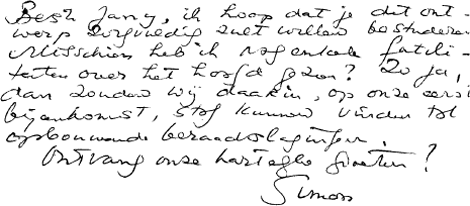 Best Jany, ik hoop dat je dit ont-
werp zorgvuldig zult willen bestuderen
Misschien heb ik nog enkele facili-
teiten over het hoofd gezien? Zo ja,
dan zouden wij daarin, op onze eerst
bijeenkomst, stof kunnen vinden tot
opbouwende beraadslagingen.
Ontvang onze hartelijke groeten!
Simon